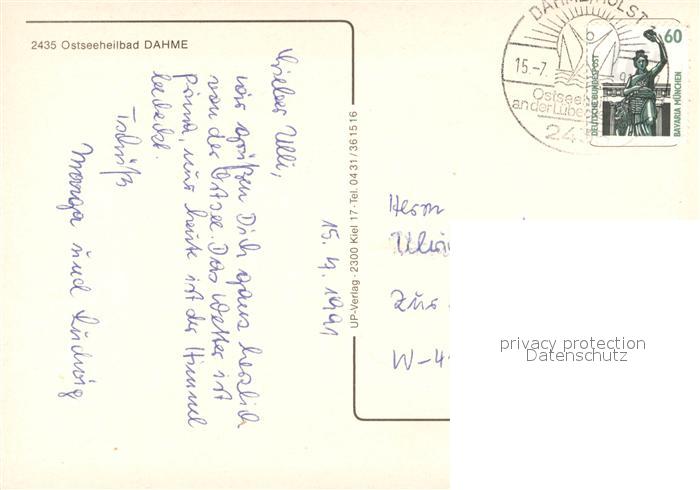 2435 Ostseeheilbad DAHME
15. 7. 1991
Lieber Ulli,
wir grüßen Dich ganz herzlich
von der Ostsee. Das Wetter ist
prima, nur heute ist der Himmel
bedeckt.
Tschüß
und Ludwig
UP-Verlag · 2300 Kiel 17 · Tel. 04 31 / 36 15 16
DAHME/HOLST
15.-7.
Ostsee
an der Lübe
24
60
DEUTSCHE BUNDESPOST
BAVARIA MÜNCHEN
Herrn
Zur
W-4
privacy protection
Datenschutz